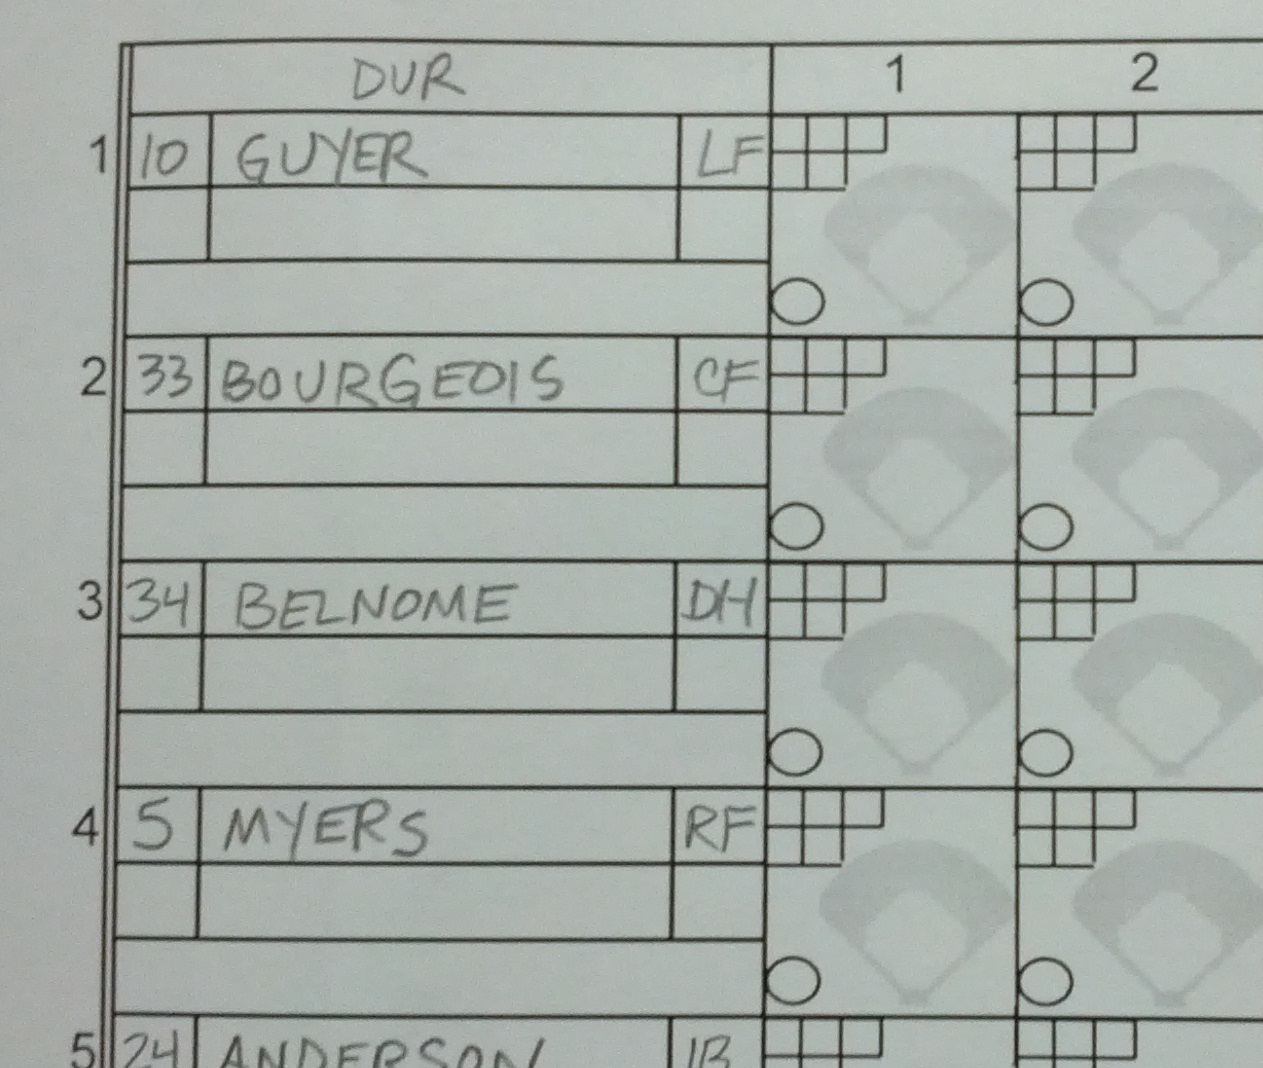 DUR 1 2
1 10 GUYER LF
2 33 BOURGEOIS CF
3 34 BELNOME DH
4 5 MYERS RF
5 24 ANDERSON 1B